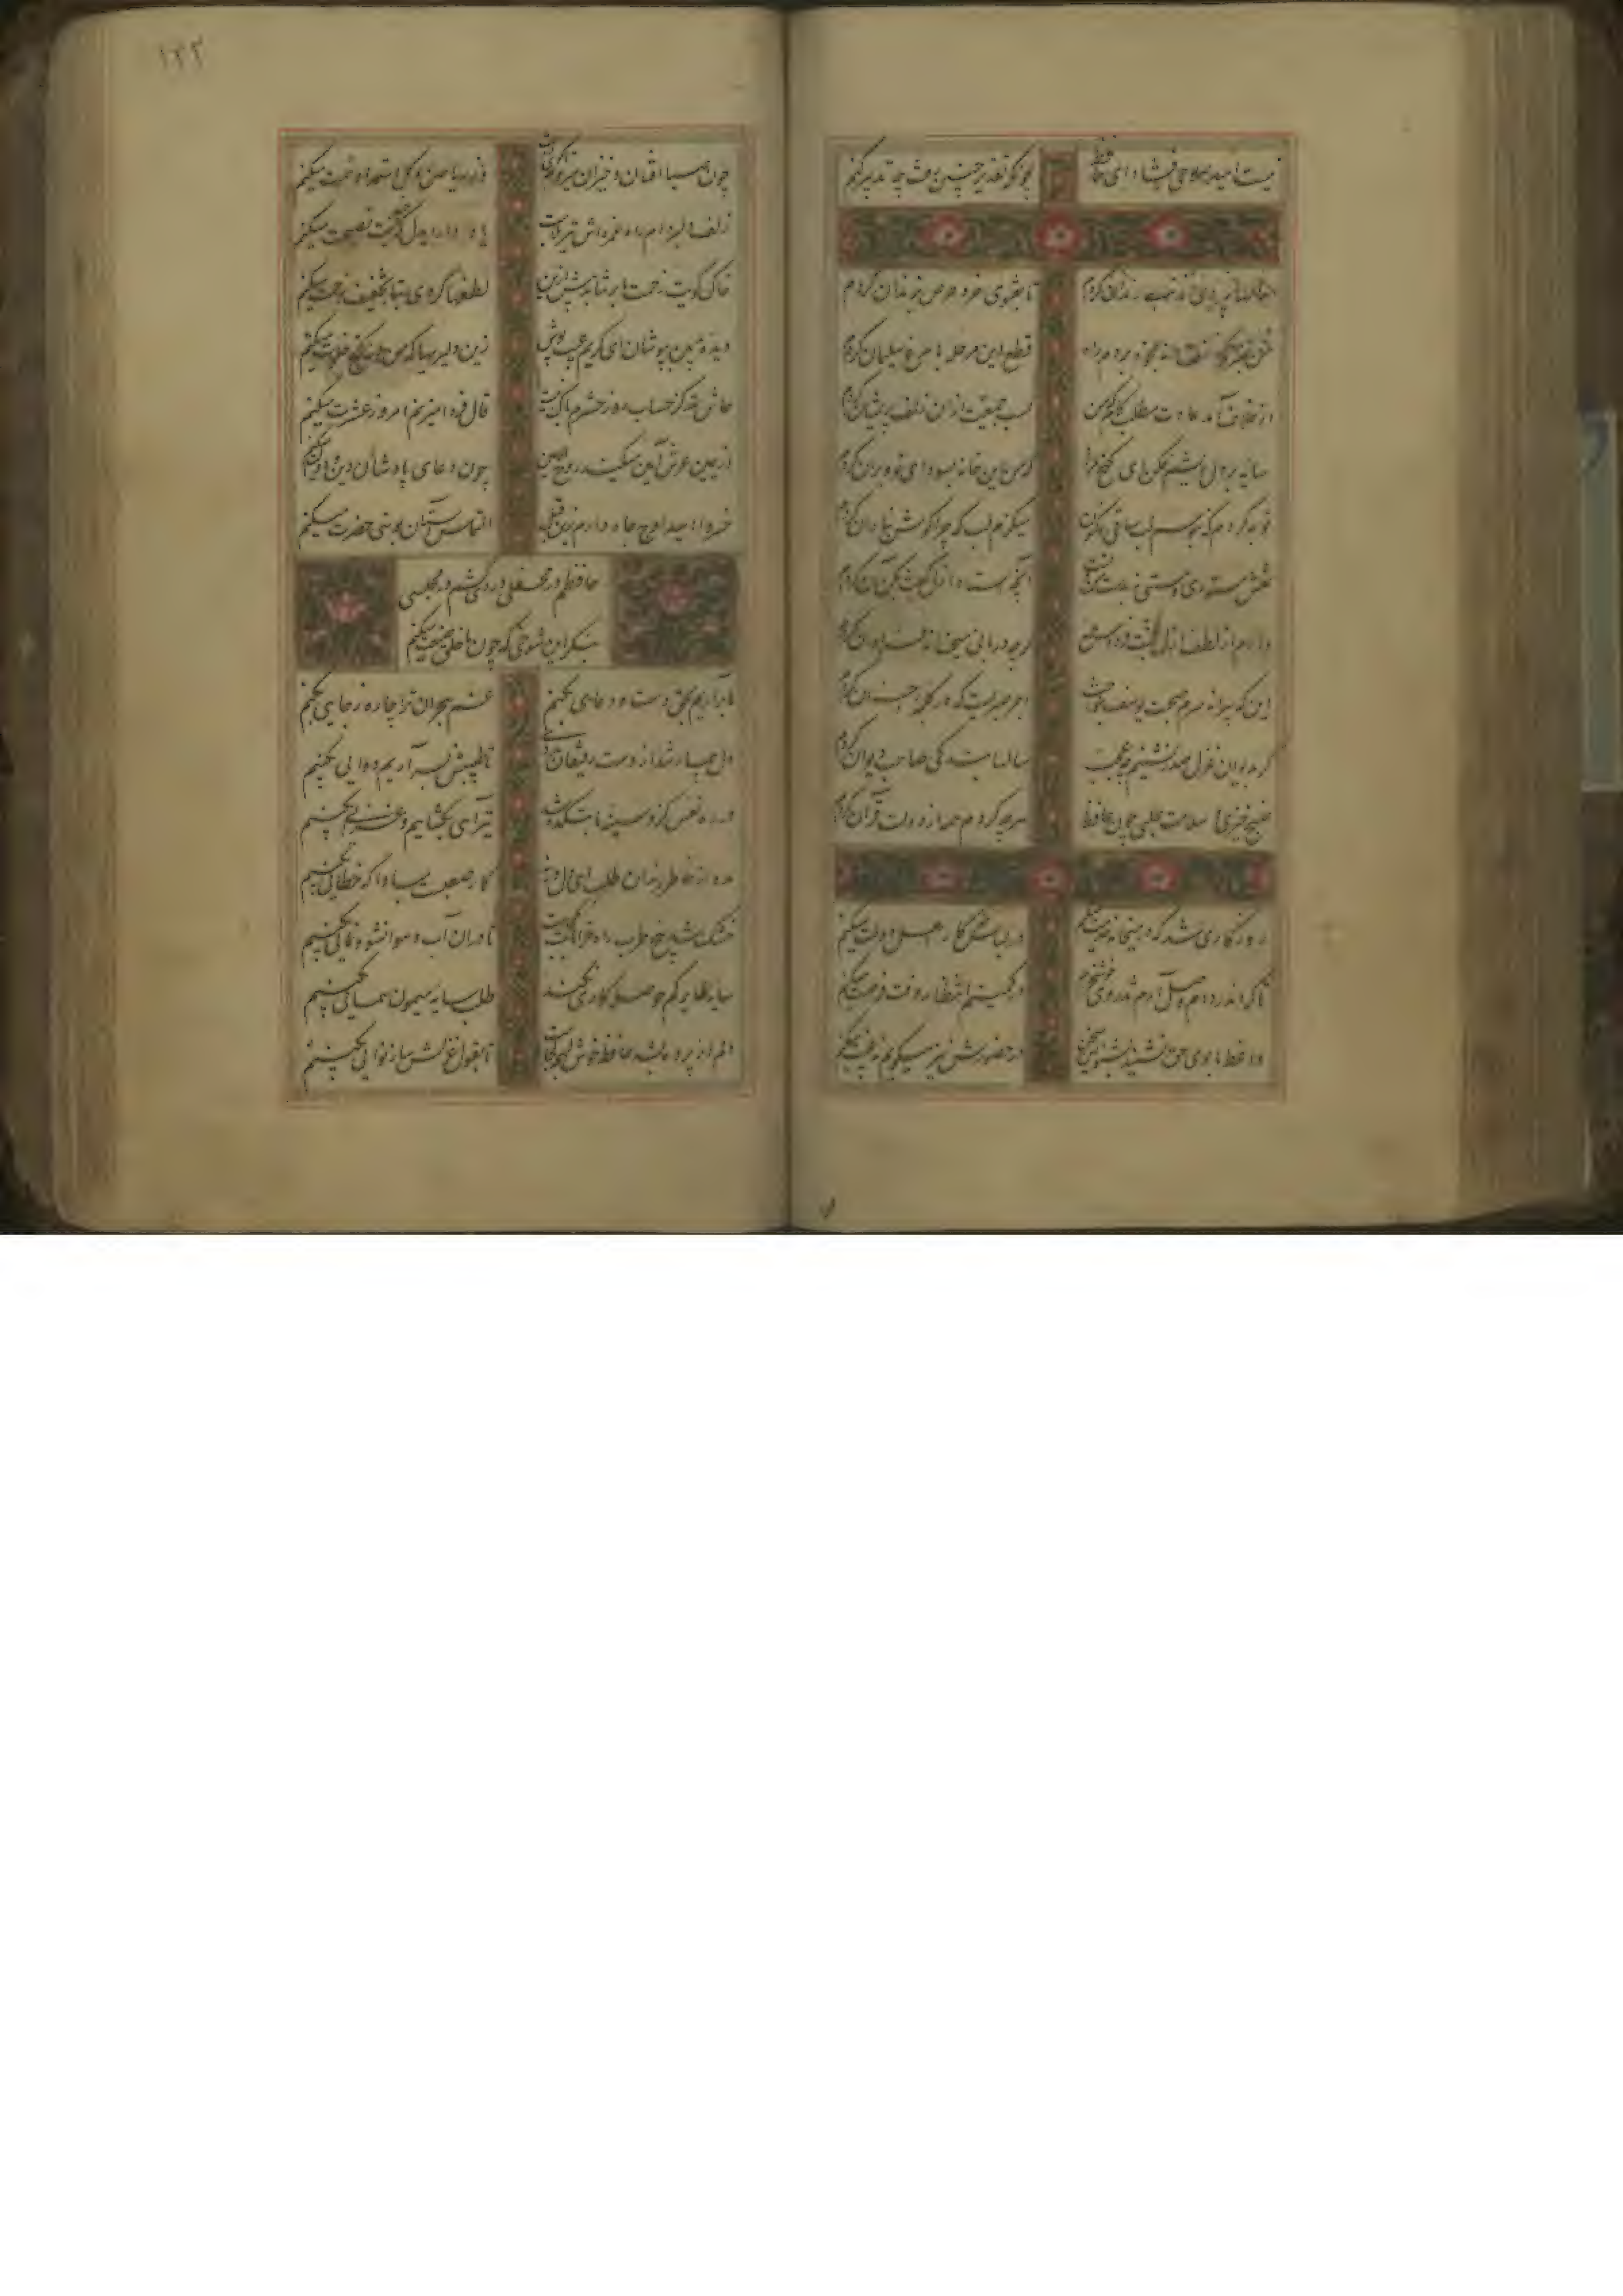 نیست امید صلاحی ز فساد ای حافظ
چونکه تقدیر چنین رفت چه تدبیر کنم
سالها پیروی مذهب رندان کردم
تا بفتوی خرد حرص بزندان کردم
من بسر منزل عنقا نه بخود بردم راه
قطع این مرحله با مرغ سلیمان کردم
از خلاف آمد عادت مطلب کام که من
کسب جمعیت از آن زلف پریشان کردم
سایه بر دل ریشم فکن ای گنج مراد
که من این خانه بسودای تو ویران کردم
توبه کردم که نبوسم لب ساقی و کنون
میگزم لب که چرا گوش بنادان کردم
نقش مستوری و مستی نه بدست من و تست
آنچه استاد ازل گفت بکن آن کردم
دارم از لطف ازل جنت فردوس طمع
گرچه دربانی میخانه فراوان کردم
این که پیرانه سرم صحبت یوسف بنواخت
اجر صبریست که در کلبه احزان کردم
گر بدیوان غزل صدر نشینم چه عجب
سالها بندگی صاحب دیوان کردم
صبح خیزی و سلامت طلبی چون حافظ
هرچه کردم همه از دولت قرآن کردم
روزگاری شد که در میخانه خدمت میکنم
در لباس فقر کار اهل دولت میکنم
تا کی اندر دام وصل آرم تذروی خوشخرام
در کمینم انتظار وقت فرصت میکنم
واعظ ما بوی حق نشنید بشنو این سخن
در حضورش نیز میگویم نه غیبت میکنم
۱۲۲
چون صبا افتان و خیزان میروم تا کوی دوست
وز ریاحین و گل استمداد همت میکنم
زلف دلبر دام راه و غمزه اش تیر بلاست
یاد دار ای دل که چندینت نصیحت میکنم
خاک کویت زحمت ما بر نتابد بیش ازین
لطفها کردی بتا تخفیف زحمت میکنم
دیده بدبین بپوشان ای کریم عیب پوش
زین دلیریها که من در کنج خلوت میکنم
حاش لله کز حساب روز حشرم باک نیست
فال فردا میزنم امروز عشرت میکنم
از یمین عرش آمین میکند روح الامین
چون دعای پادشاه ملک و ملت میکنم
خسروا امید اوج جاه دارم زین قبل
التماس آستان بوسی حضرت میکنم
حافظم در محفلی دردی کشم در مجلسی
بنگر این شوخی که چون با خلق صنعت میکنم
ما برآریم شبی دست و دعایی بکنیم
غم هجران ترا چاره ز جایی بکنیم
دل بیمار شد از دست رفیقان مددی
تا طبیبش بسر آریم و دوایی بکنیم
در ره نفس کزو سینه ما بتکده شد
تیر آهی بگشاییم و غزایی بکنیم
مدد از خاطر رندان طلب ای دل ورنه
کار صعبست مبادا که خطایی بکنیم
خشک شد بیخ طرب راه خرابات کجاست
تا در آن آب و هوا نشو و نمایی بکنیم
سایه طایر کم حوصله کاری نکند
طلب سایه میمون همایی بکنیم
دلم از پرده بشد حافظ خوش لهجه کجاست
تا بقول و غزلش ساز و نوایی بکنیم